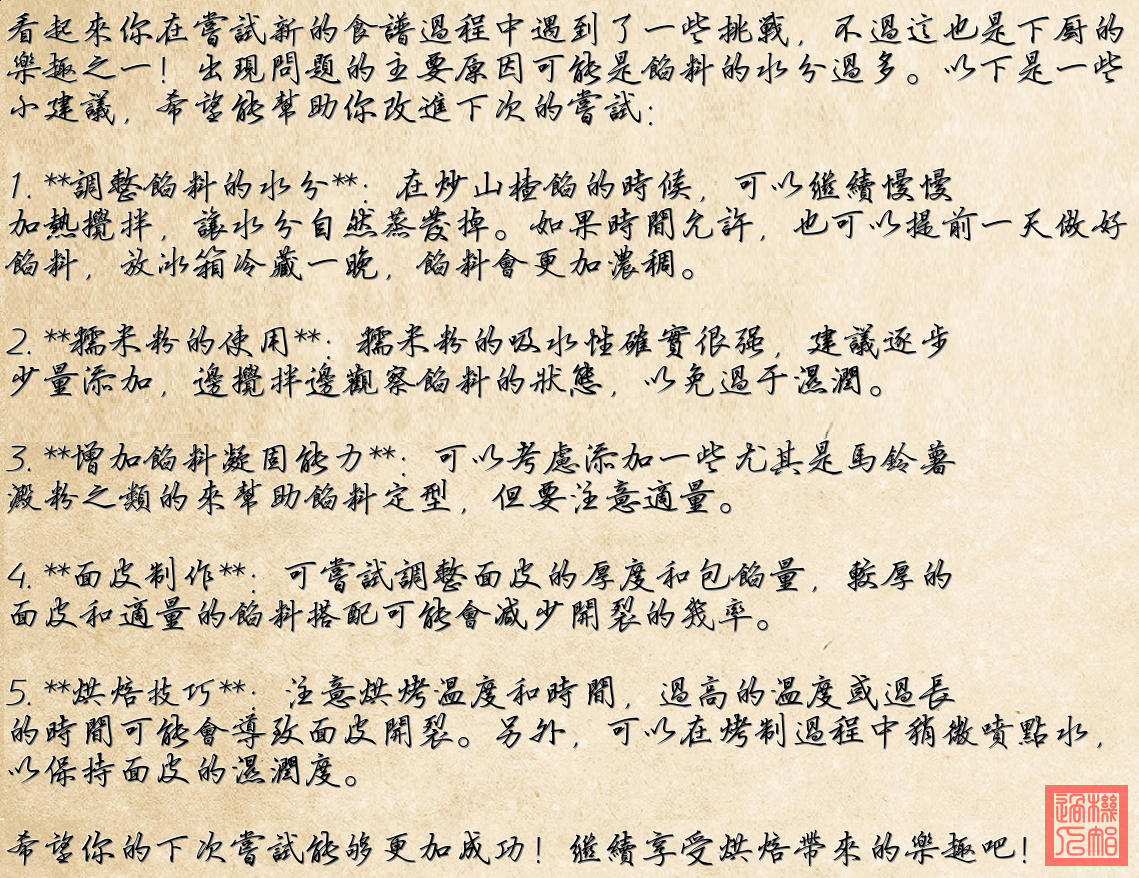 看起來你在嘗試新的食譜過程中遇到了一些挑戰，不過這也是下厨的
樂趣之一！出現問題的主要原因可能是餡料的水分過多。以下是一些
小建議，希望能幫助你改進下次的嘗試：
1. **調整餡料的水分**：在炒山楂餡的時候，可以繼續慢慢
加熱攪拌，讓水分自然蒸發掉。如果時間允許，也可以提前一天做好
餡料，放冰箱冷藏一晚，餡料會更加濃稠。
2. **糯米粉的使用**：糯米粉的吸水性確實很强，建議逐步
少量添加，邊攪拌邊觀察餡料的狀態，以免過于濕潤。
3. **增加餡料凝固能力**：可以考慮添加一些尤其是馬鈴薯
澱粉之類的來幫助餡料定型，但要注意適量。
4. **面皮制作**：可嘗試調整面皮的厚度和包餡量，較厚的
面皮和適量的餡料搭配可能會减少開裂的幾率。
5. **烘焙技巧**：注意烘烤溫度和時間，過高的溫度或過長
的時間可能會導致面皮開裂。另外，可以在烤制過程中稍微噴點水，
以保持面皮的濕潤度。
希望你的下次嘗試能够更加成功！繼續享受烘焙帶來的樂趣吧！